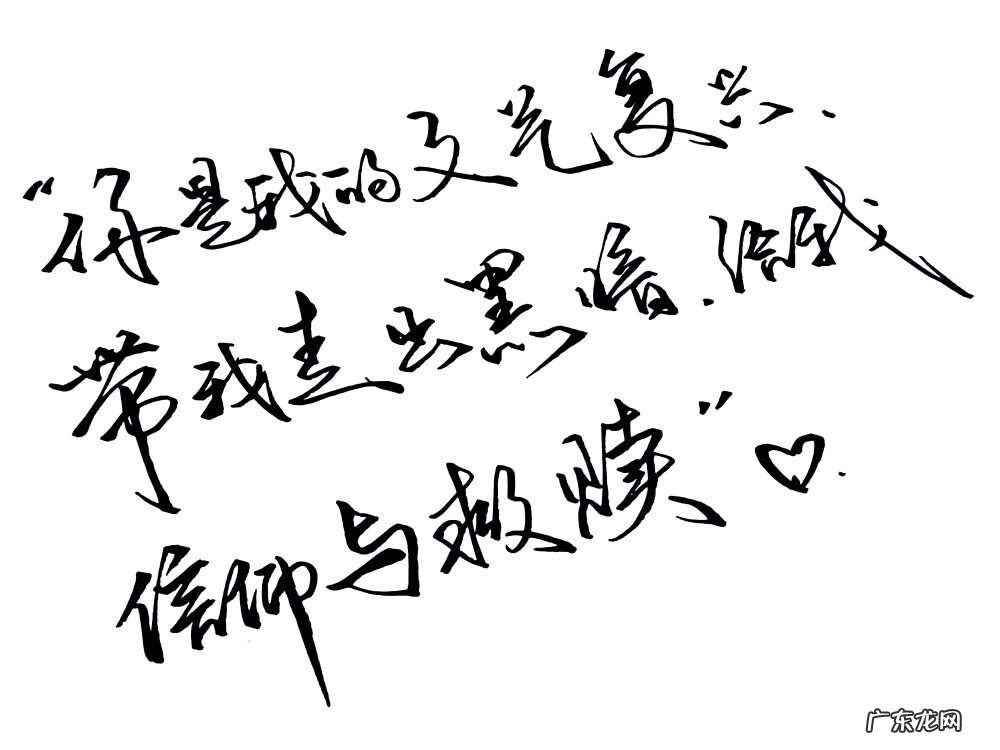 “你是我的文艺复兴.
带我走出黑暗.给我
信仰与救赎”♡.
广东龙网